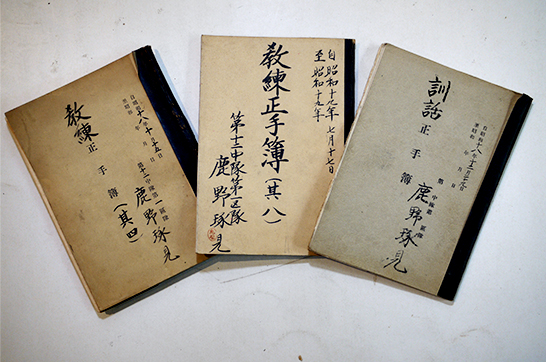 自昭和十八年十月十五日
至昭和 年 月 日
教練正手簿(其四)
鹿野琢見
自昭和十九年七月十七日
至昭和十九年
教練正手簿(其八)
鹿野琢見
自昭和十八年十二月
至昭和 年 月 日
訓話正手簿
第 中隊第 區隊
鹿野琢見